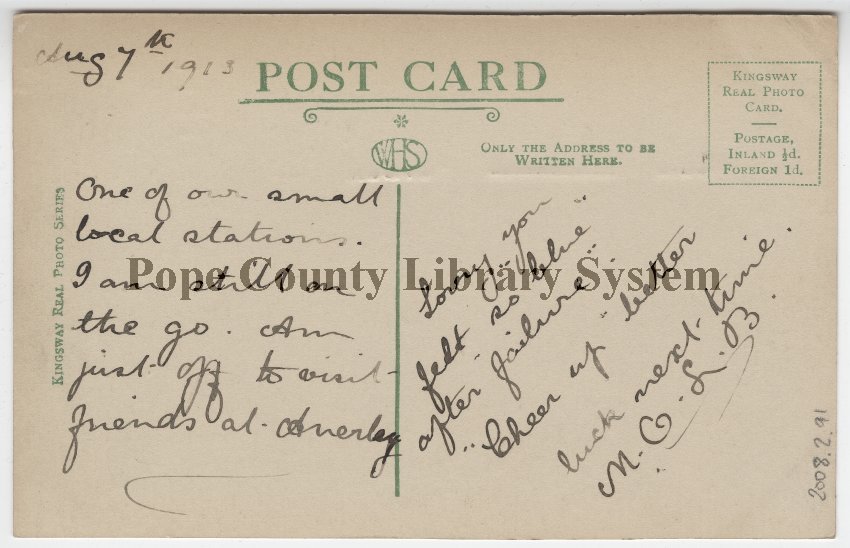 Aug 7th 1913
POST CARD
WHS
ONLY THE ADDRESS TO BE
WRITTEN HERE.
KINGSWAY
REAL PHOTO
CARD.
POSTAGE,
INLAND ½d.
FOREIGN 1d.
KINGSWAY REAL PHOTO SERIES
One of our small
local stations.
I am still on
the go. Am
just off to visit
friends at Anerley
Sorry you
felt so "blue"
after "failure".
"Cheer up" better
luck next time.
M.O.L.B.
Pope County Library System
2008.2.91